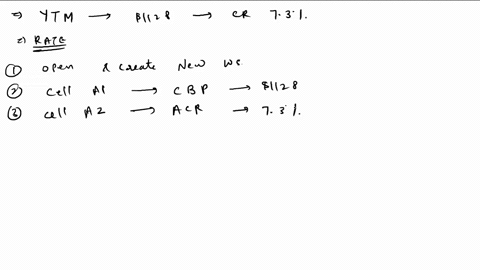 ⇒ YTM → $1128 → CR 7.3%.
⇒ RATE
① Open & Create New WS
② Cell A1 → CBP → $1128
③ Cell A2 → ACR → 7.3%.